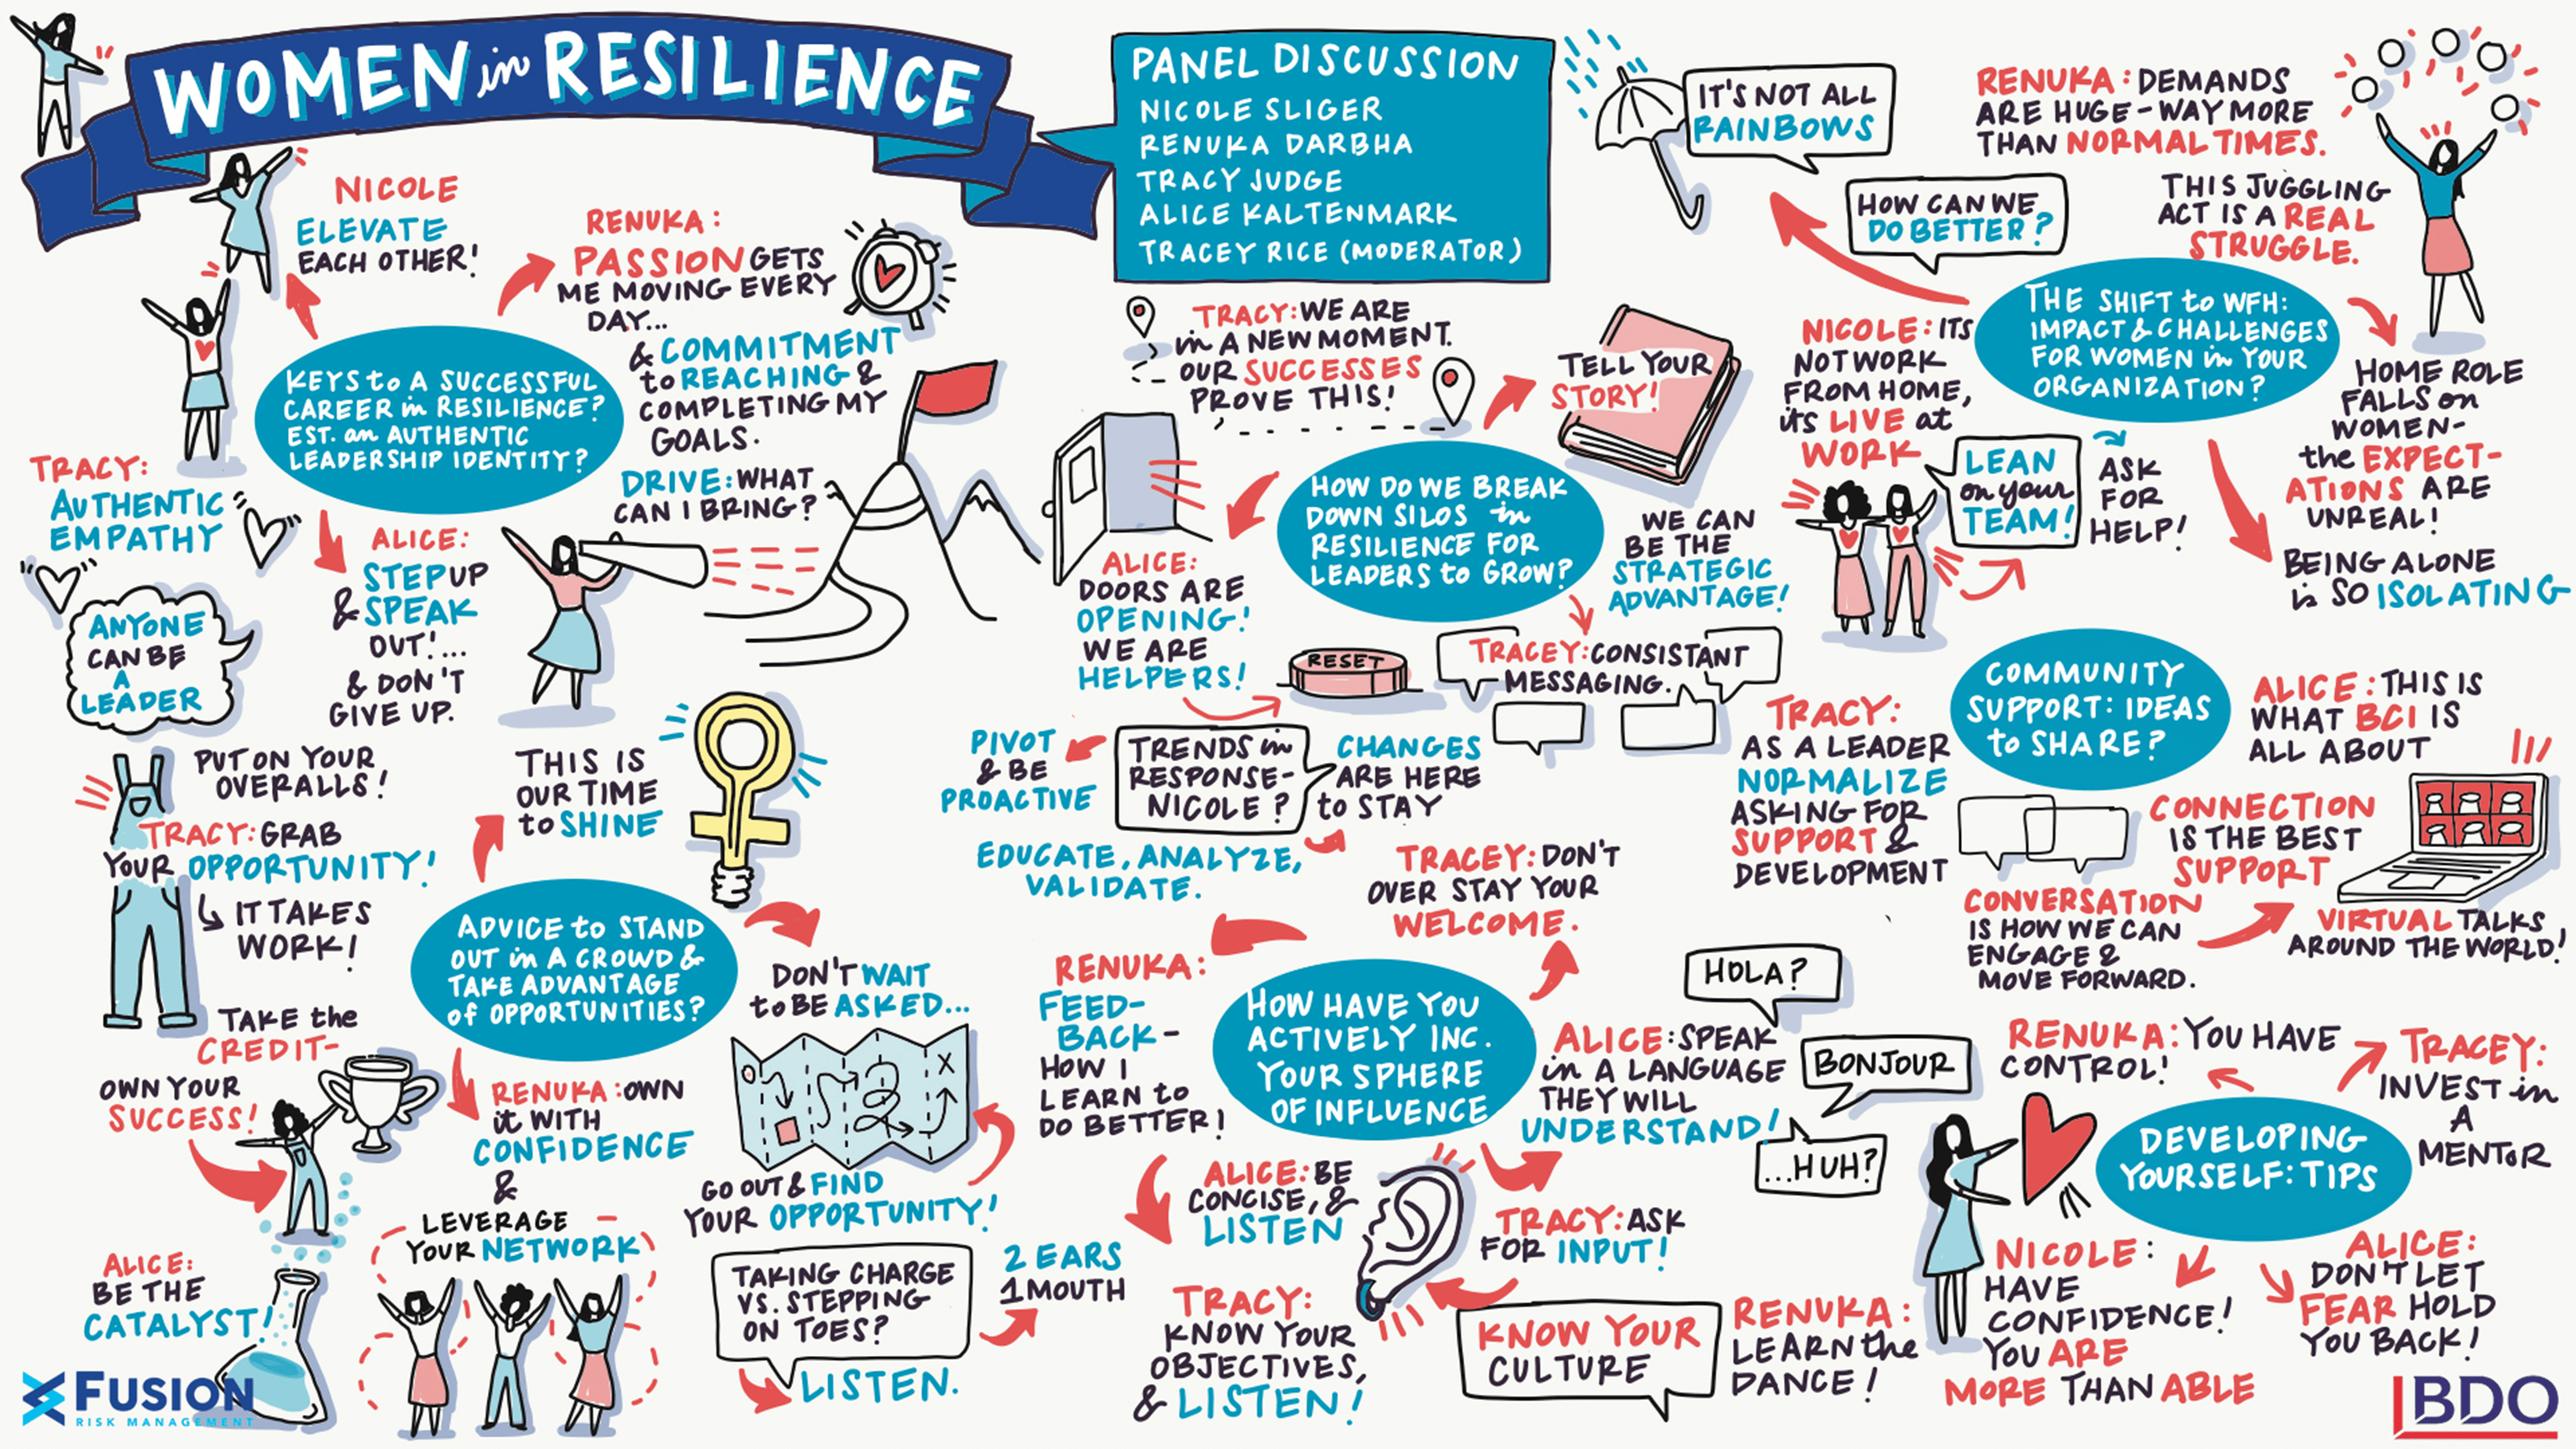 WOMEN in RESILIENCE
PANEL DISCUSSION
NICOLE SLIGER
RENUKA DARBHA
TRACY JUDGE
ALICE KALTENMARK
TRACEY RICE (MODERATOR)
KEYS to A SUCCESSFUL
CAREER in RESILIENCE?
EST. an AUTHENTIC
LEADERSHIP IDENTITY?
NICOLE
ELEVATE
EACH OTHER!
RENUKA:
PASSION GETS
ME MOVING EVERY
DAY...
& COMMITMENT
to REACHING &
COMPLETING MY
GOALS.
DRIVE: WHAT
CAN I BRING?
TRACY:
AUTHENTIC
EMPATHY
ANYONE
CAN BE
A
LEADER
ALICE:
STEP UP
& SPEAK
OUT!...
& DON'T
GIVE UP.
ADVICE to STAND
OUT in A CROWD &
TAKE ADVANTAGE
of OPPORTUNITIES?
PUT ON YOUR
OVERALLS!
TRACY: GRAB
YOUR OPPORTUNITY!
IT TAKES
WORK!
THIS IS
OUR TIME
to SHINE
TAKE the
CREDIT-
OWN YOUR
SUCCESS!
ALICE:
BE THE
CATALYST!
RENUKA: OWN
it WITH
CONFIDENCE
&
LEVERAGE
YOUR NETWORK
DON'T WAIT
to BE ASKED...
X
GO OUT & FIND
YOUR OPPORTUNITY!
TAKING CHARGE
VS. STEPPING
ON TOES?
LISTEN.
2 EARS
1 MOUTH
HOW DO WE BREAK
DOWN SILOS in
RESILIENCE FOR
LEADERS to GROW?
TRACY: WE ARE
in A NEW MOMENT.
OUR SUCCESSES
PROVE THIS!
TELL YOUR
STORY!
WE CAN
BE THE
STRATEGIC
ADVANTAGE!
ALICE:
DOORS ARE
OPENING!
WE ARE
HELPERS!
RESET
TRACEY: CONSISTANT
MESSAGING.
TRENDS in
RESPONSE-
NICOLE?
PIVOT
& BE
PROACTIVE
CHANGES
ARE HERE
to STAY
EDUCATE, ANALYZE,
VALIDATE.
HOW HAVE YOU
ACTIVELY INC.
YOUR SPHERE
OF INFLUENCE
TRACEY: DON'T
OVER STAY YOUR
WELCOME.
RENUKA:
FEED-
BACK-
HOW I
LEARN to
DO BETTER!
ALICE: BE
CONCISE, &
LISTEN
TRACY:
KNOW YOUR
OBJECTIVES,
& LISTEN!
ALICE: SPEAK
in A LANGUAGE
THEY WILL
UNDERSTAND!
HOLA?
BONJOUR
...HUH?
TRACY: ASK
FOR INPUT!
KNOW YOUR
CULTURE
RENUKA:
LEARN the
DANCE!
THE SHIFT to WFH:
IMPACT & CHALLENGES
FOR WOMEN in YOUR
ORGANIZATION?
IT'S NOT ALL
RAINBOWS
HOW CAN WE
DO BETTER?
RENUKA: DEMANDS
ARE HUGE - WAY MORE
THAN NORMAL TIMES.
THIS JUGGLING
ACT IS A REAL
STRUGGLE.
NICOLE: ITS
NOT WORK
FROM HOME,
its LIVE at
WORK
LEAN
on your
TEAM!
ASK
FOR
HELP!
HOME ROLE
FALLS on
WOMEN-
the EXPECT-
ATIONS ARE
UNREAL!
BEING ALONE
is SO ISOLATING
COMMUNITY
SUPPORT: IDEAS
to SHARE?
TRACY:
AS A LEADER
NORMALIZE
ASKING FOR
SUPPORT &
DEVELOPMENT
ALICE: THIS IS
WHAT BCI IS
ALL ABOUT
CONNECTION
IS THE BEST
SUPPORT
CONVERSATION
IS HOW WE CAN
ENGAGE &
MOVE FORWARD.
VIRTUAL TALKS
AROUND THE WORLD!
DEVELOPING
YOURSELF: TIPS
RENUKA: YOU HAVE
CONTROL!
TRACEY:
INVEST in
A
MENTOR
NICOLE:
HAVE
CONFIDENCE!
YOU ARE
MORE THAN ABLE
ALICE:
DON'T LET
FEAR HOLD
YOU BACK!
FUSION
RISK MANAGEMENT
BDO